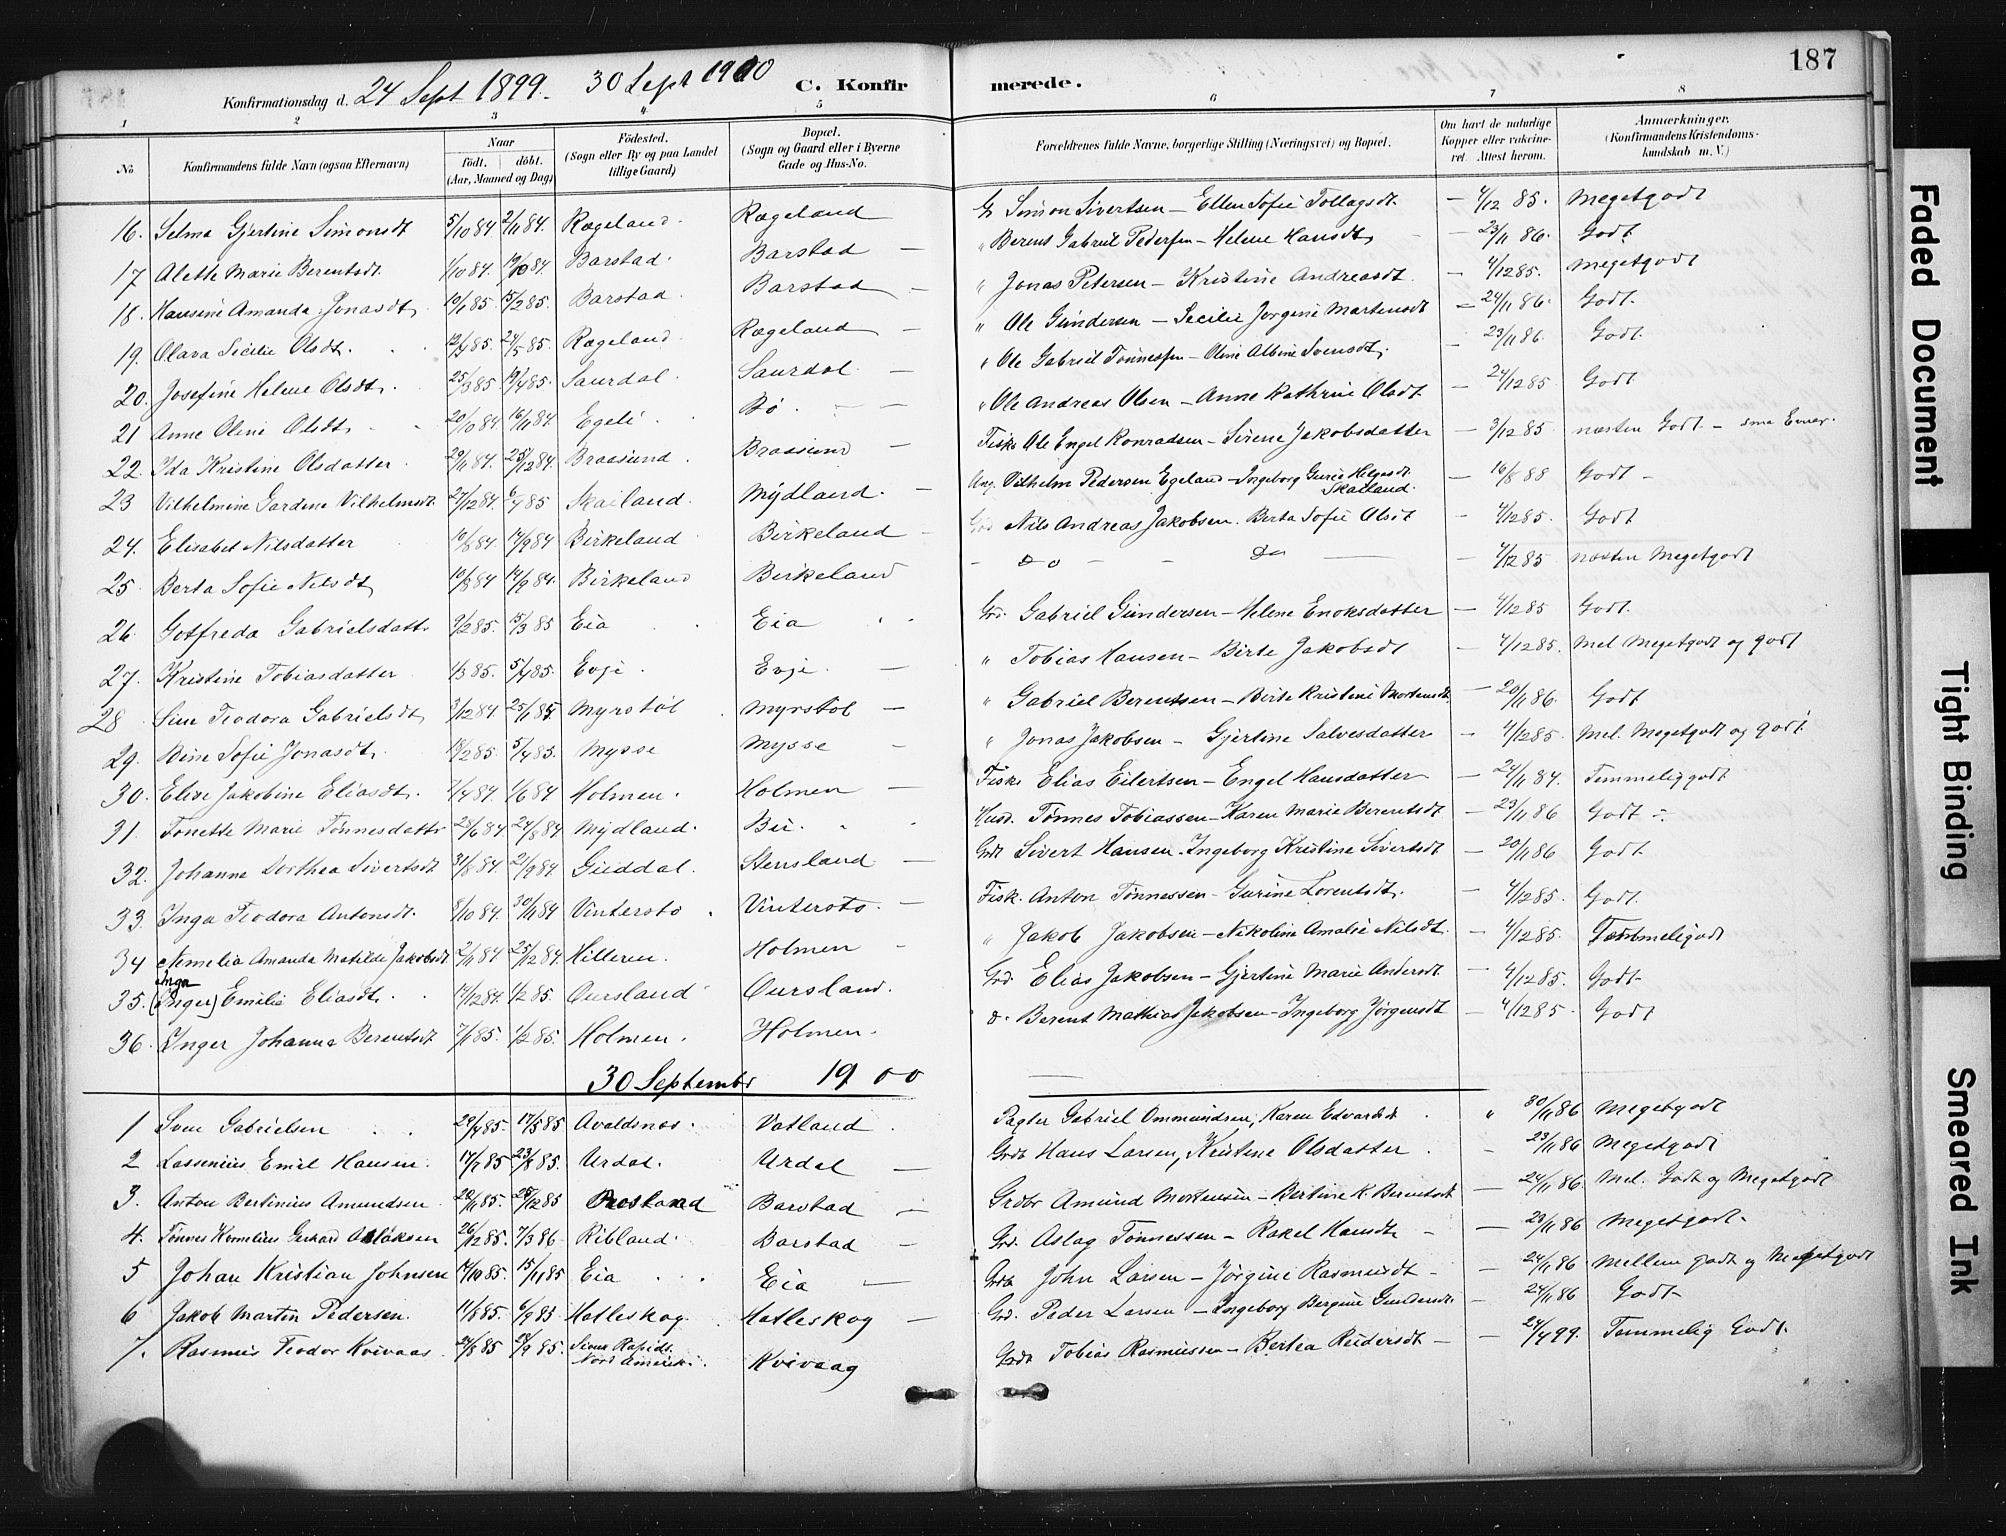 187
Konfirmationsdag d. 24 Sept 1899. 30 Sept 1900 C. Konfirmerede.
1 2 3 4 5 6 7 8
No.
Konfirmandens fulde Navn (ogsaa Efternavn)
Naar
født. døbt.
(Aar, Maaned og Dag)
Fødested.
(Sogn eller By og paa Landet
tillige Gaard)
Bopæl.
(Sogn og Gaard eller i Byerne
Gade og Hus-No.
Forældrenes fulde Navne, borgerlige Stilling (Næringsvei) og Bopæl.
Om havt de naturlige
Kopper eller vakcine-
ret. Attest herom.
Anmærkninger.
(Konfirmandens Kristendoms-
kundskab m. V.)
16. Selma Gjertine Simonsdt 5/10 84 2/11 84. Rægeland. Rægeland G Simon Sivertsen — Ellen Sofie Tollagsdt. — 4/12 85. Megetgodt
17 Alette Marie Berentsdt. 1/10 84. 19/10 84. Barstad. Barstad — " Berent Gabriel Pedersen — Helene Hansdt, — 23/11 86. Godt
18. Hansine Amanda Jonasdt, 10/1 85. 15/2 85. Barstad. Barstad — " Jonas Petersen — Kristine Andreasdt. — 4/12 85. Megetgodt
19. Olava Secilie Olsdt. 12/4 85. 24/5 85. Rægeland. Rægeland — " Ole Gundersen — Secilie Jørgine Martensdt — 24/11 86. Godt.
20. Josefine Helene Olsdt. 25/3 85. 19/4 85. Saurdal. Saurdal. — " Ole Gabriel Tønnessen — Oline Albine Svensdt, — 23/11 86. Godt.
21 Anne Oline Olsdt, 20/10 84 16/11 84 Egeli. Bø. — " Ole Andreas Olsen — Anne Kathrine Olsdt — 24/12 85. Godt
22. Ida Kristine Olsdatter. 29/11 84. 25/12 84. Braasund. Braasund — Fisk. Ole Engel Konradsen — Sirene Jakobsdatter — 3/12 85. næsten Godt —
23 Vilhelmine Gardine Vilhelmsdt. 27/12 84. 6/4 85 Skailand. Mydland. — Ung. Vilhelm Pedersen Egeland — Ingeborg Gurie Helgesdt. Skailand. — 16/8 88 Godt —
24. Elisabet Nilsdatter 10/8 84. 14/9 84 Birkeland Birkeland — Grd Nils Andreas Jakobsen. Berta Sofie Olsdt — 4/12 85. Godt
25. Berta Sofie Nilsdt, 10/8 84 14/9 84. Birkeland Birkeland — Do — — Do — — 4/12 85 næsten Megetgodt
26. Gotfreda Gabrielsdattr 9/2 85. 15/3 85 Eia Eia Grd. Gabriel Gundersen — Helene Enoksdatter — 4/12 85 Godt.
27. Kristine Tobiasdatter 1/3 85. 5/4 85. Evje. Evje. — " Tobias Hansen — Birte Jakobsdt — 4/12 85. Mel Megetgodt og godt
28. Sine Teodora Gabrielsdt, 3/12 84 25/1 85. Myrstøl Myrstøl — " Gabriel Berentsen — Birte Kristine Mortensdt. — 20/11 86. Godt
29. Bine Sofie Jonasdt, 18/2 85. 5/4 85. Mysse Mysse — " Jonas Jakobsen — Gjertine Salvesdatter — 4/12 85. Mel. Megetgodt og godt.
30. Elise Jakobine Eliasdt. 2/4 84. 1/6 84 Holmen. Holmen — Fisk. Elias Eilertsen — Engel Hansdatter — 24/11 84. Temmeliggodt
31. Tonette Marie Tønnesdattr 28/6 84 24/8 84 Mydland. Bu. Husd. Tønnes Tobiassen — Karen Marie Berentsdt — 23/11 86 Godt —
32. Johanne Dorthea Sivertsdt 31/8 84 21/9 84 Guddal. Stensland — Grdt Sivert Hansen — Ingeborg Kristine Sivertsdt — 20/11 86 Godt.
33. Inga Teodora Antonsdt. 8/10 84. 30/11 84 Vintersto. Vintersto. — Fisk. Anton Tønnessen — Gurine Lorentsdt. — 4/12 85. Godt.
34 Nemelia Amanda Matilde Jakobsdt. 2/11 84 25/12 84. Hilleren. Holmen — " Jakob Jakobsen — Nikoline Amalie Nilsdt. — 4/12 85. Temmeligodt
35. Inga (Inger) Emilie Eliasdt. 14/12 84. 1/2 85. Oursland Oursland. Grd. Elias Jakobsen — Gjertine Marie Andersdt. — 4/12 85. Godt
36. Inger Johanna Berentsdt 7/1 85. 1/2 85. Holmen. Holmen. d. Berent Mathias Jakobsen — Ingeborg Jørgensdt — 4/12 85. Godt
30 Septembr 1900
1 Sven Gabrielsen 29/4 85. 17/5 85 Avaldsnes. Vatland. Pagter Gabriel Ommundsen, Karen Edvardsdt. " 30/11 86 Megetgodt
2 Lassenius Emil Hansen. 14/7 85 23/8 85. Urdal. Urdal — Grdb Hans Larsen, Kristine Olsdatter. — 23/11 86 Megetgodt
3. Anton Bertinius Amundsen 20/11 85. 25/12 85 Barstad — Grdbr Amund Mortensen — Bertine K. Berentsdt — 24/11 86 Mel. Godt og Megetgodt
4. Tønnes Kornelius Gerhard Aslaksen 26/12 85. 7/3 86 Ribland. Barstad — Grd. Aslag Tønnessen — Rakel Hansdt — — 23/11 86 Megetgodt.
5 Johan Kristian Johnsen 14/10 85. 15/11 85 Eia Eia — Grdb John Larsen — Jørgine Rasmusdt — — 24/11 86 Mellem godt og Megetgodt
6 Jakob Martin Pedersen. 11/8 85. 6/9 85 Hatleskog. Hatleskog — Grd. Peder Larsen — Ingeborg Bergine Gundersdt. — 24/11 86 Godt
7. Rasmus Teodor Kvivaas. 24/8 85 28/9 85. Sioux Rapids. Nord Amerika. Kvivaag Grdb Tobias Rasmussen — Bertea Reidersdt — — 24/4 99. Temmelig Godt.
Faded Document
Tight Binding
Smeared Ink